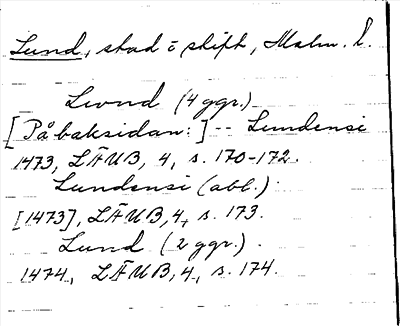 Lund, stad o skift, Malm. l.
Lund (4 ggr.)
[På baksidan:] -- Lundensi
1473, LÄUB, 4, s. 170-172.
Lundensi (abl.)
[1473], LÄUB, 4, s. 173.
Lund (2 ggr.)
1474, LÄUB, 4, s. 174.